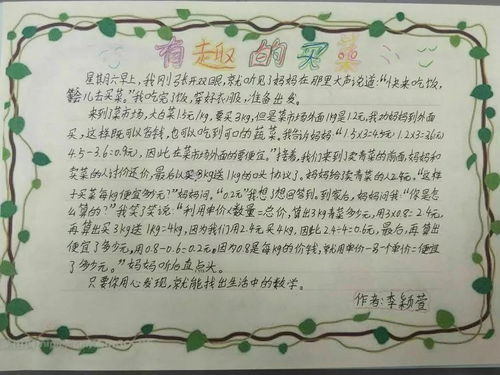 有趣的买菜
星期六早上，我刚张开双眼，就听见了妈妈在那里大声说道：“快来吃饭，
等会儿去买菜。”我吃完了饭，穿好衣服，准备出发。
来到了菜市场，大白菜1.5元1kg，要买3kg，但是菜市场外面1kg是1.2元，我劝妈妈到外面
买，这样既可以省钱，也可以吃到可口的蔬菜。我告诉妈妈：“1.5×3=4.5元 1.2×3=3.6元
4.5-3.6=0.9元，因此在菜市场外面的要便宜。”接着，我们来到了卖青菜的商店，妈妈和
卖菜的人讨价还价，最后以买3kg送1kg的口头协议了。妈妈给卖青菜的人2.4元。“这样
子买菜每kg便宜多少元？”妈妈问。“0.2元”我想了想回答到。到家后，妈妈问我：“你是怎
么算的？”我笑了笑说：“利用单价×数量=总价，算出3kg青菜多少元，用3×0.8=2.4元，
再算出买3kg送1kg=4kg，因为我们用2.4元买4kg，因此2.4÷4=0.6元，最后，再算出
便宜了多少元，用0.8-0.6=0.2元。因为0.8是每kg的价钱，就用单价-另一个单价=便宜
了多少元。”妈妈听后直点头。
只要你用心发现，就能找出生活中的数学。
作者：李颖萱